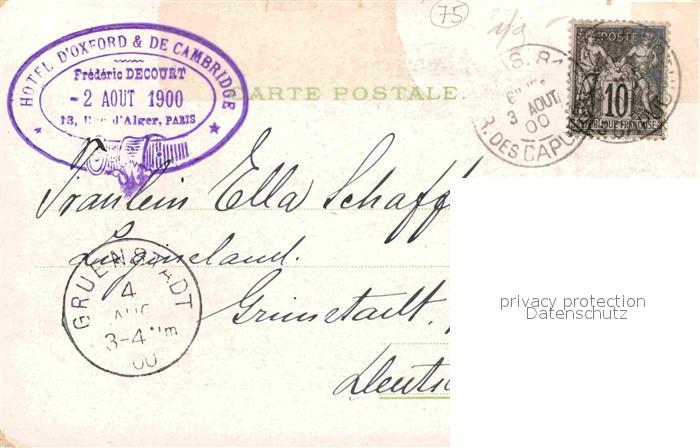 75
HOTEL D'OXFORD & DE CAMBRIDGE
Frédéric DECOURT
- 2 AOUT 1900
13, Rue d'Alger, PARIS
CARTE POSTALE
POSTE
10
RÉPUBLIQUE FRANÇAISE
3 AOUT
00
R. DES CAPU
Fräulein Ella Schaff
Luginsland.
Grünstadt.
Deutsc
GRUENSTADT
4
AUG
3-4 Nm
00
privacy protection
Datenschutz